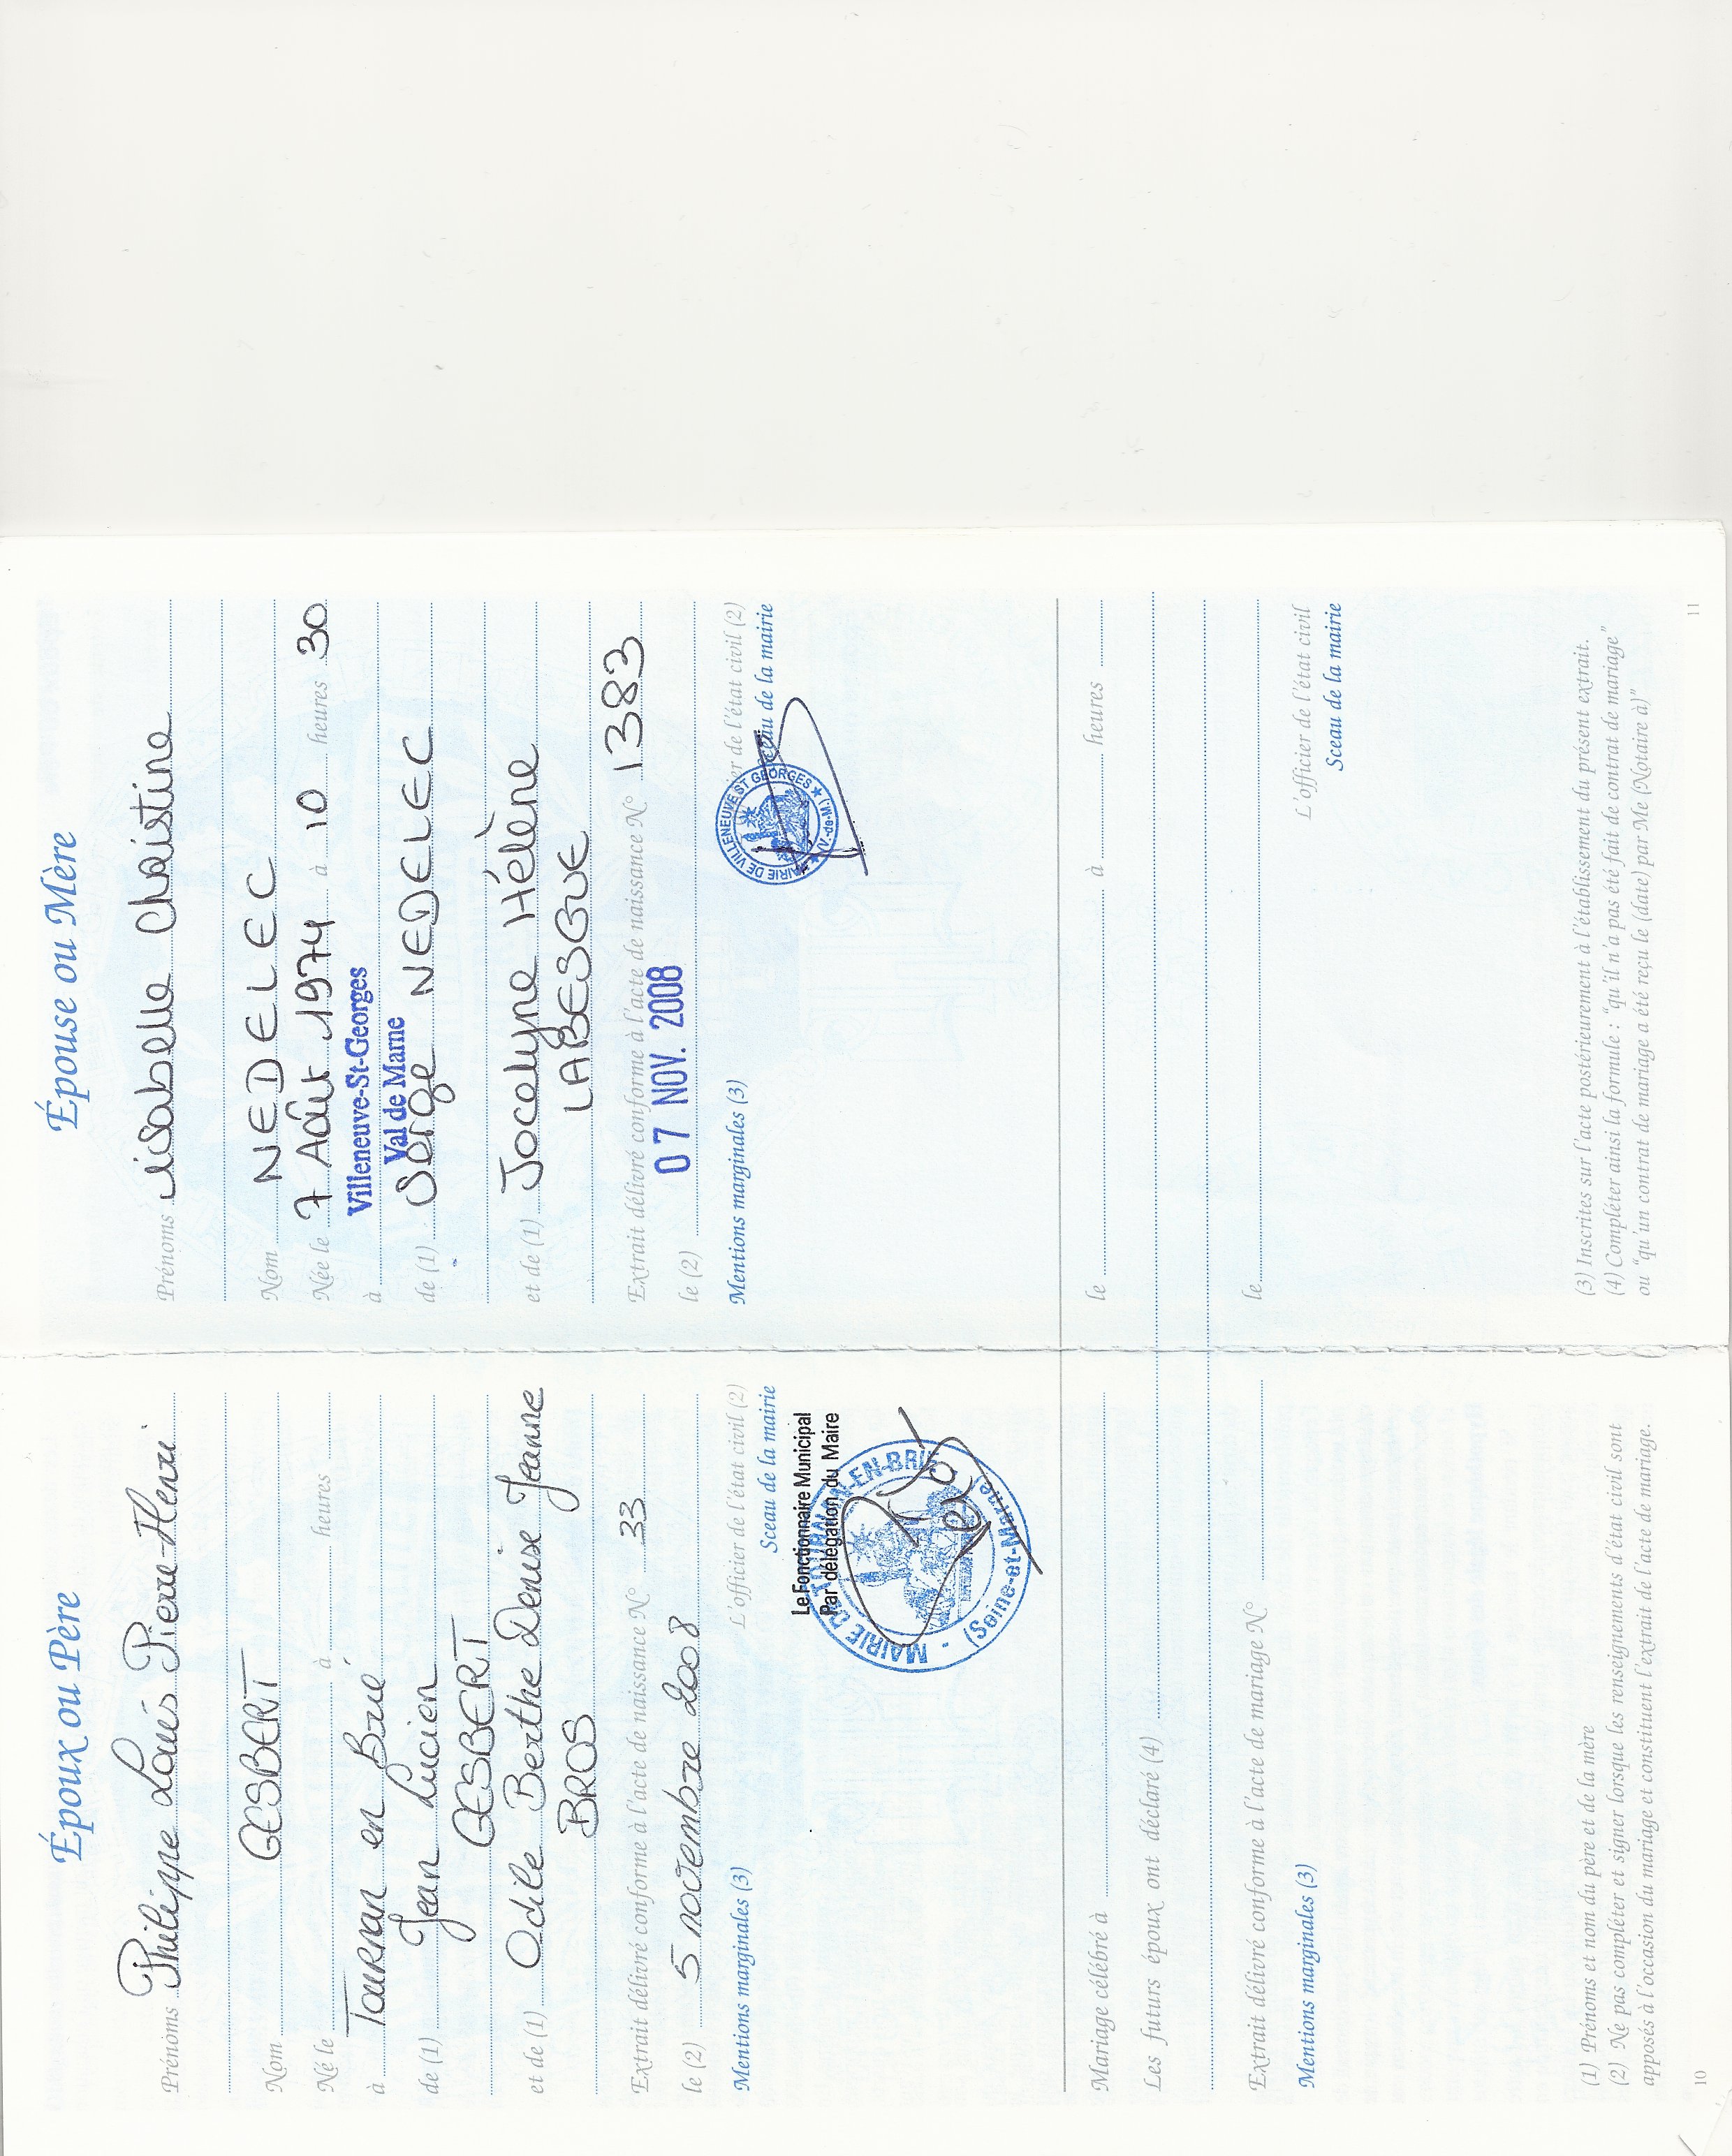 Époux ou Père
Prénoms Philippe Louis Pierre-Henri
Nom GESBERT
Né le à heures
à Tournan en Brie
de (1) Jean Lucien
GESBERT
et de (1) Odile Berthe Denise Jeanne
BROS
Extrait délivré conforme à l'acte de naissance N° 33
le (2) 5 novembre 2008
L'officier de l'état civil (2)
Mentions marginales (3)
Sceau de la mairie
Le Fonctionnaire Municipal
Par délégation du Maire
MAIRIE DE TOURNAN-EN-BRIE
- (Seine-et-Marne)
Mariage célébré à
Les futurs époux ont déclaré (4)
Extrait délivré conforme à l'acte de mariage N°
Mentions marginales (3)
(1) Prénoms et nom du père et de la mère
(2) Ne pas compléter et signer lorsque les renseignements d'état civil sont
apposés à l'occasion du mariage et constituent l'extrait de l'acte de mariage.
10
Épouse ou Mère
Prénoms isabelle Christine
Nom NEDELEC
Née le 7 Août 1974 à 10 heures 30
à Villeneuve-St-Georges
Val de Marne
de (1) Serge NEDELEC
et de (1) Jocelyne Hélène
LABESGUE
Extrait délivré conforme à l'acte de naissance N° 1383
le (2) 07 NOV. 2008
de l'état civil (2)
Mentions marginales (3)
Sceau de la mairie
MAIRIE DE VILLENEUVE ST GEORGES
★ (V.-de-M.) ★
le à heures
le
L'officier de l'état civil
Sceau de la mairie
(3) Inscrites sur l'acte postérieurement à l'établissement du présent extrait.
(4) Compléter ainsi la formule : "qu'il n'a pas été fait de contrat de mariage"
ou "qu'un contrat de mariage a été reçu le (date) par Me (Notaire à)"
11